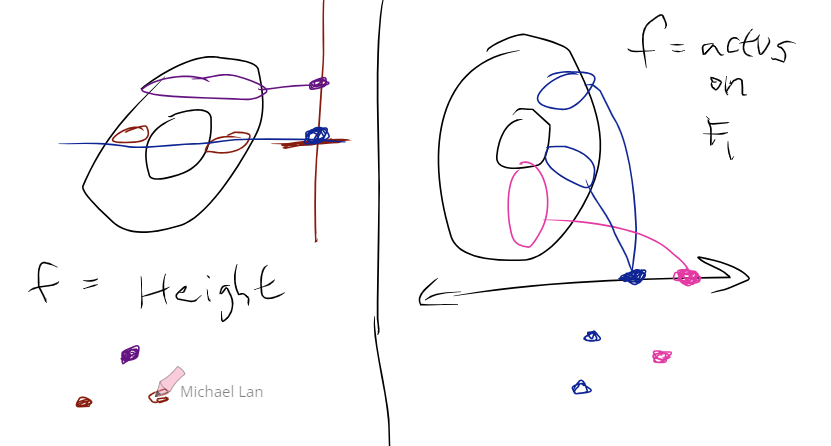 f = Height
Michael Lan
f = actvs
on
F₁